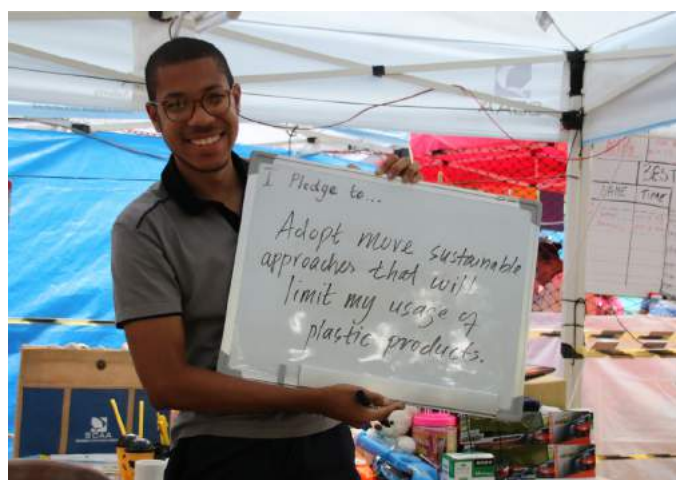 I Pledge to...
Adopt more sustainable
approaches that will
limit my usage of
plastic products.
BEST
NAME TIME
SCAA